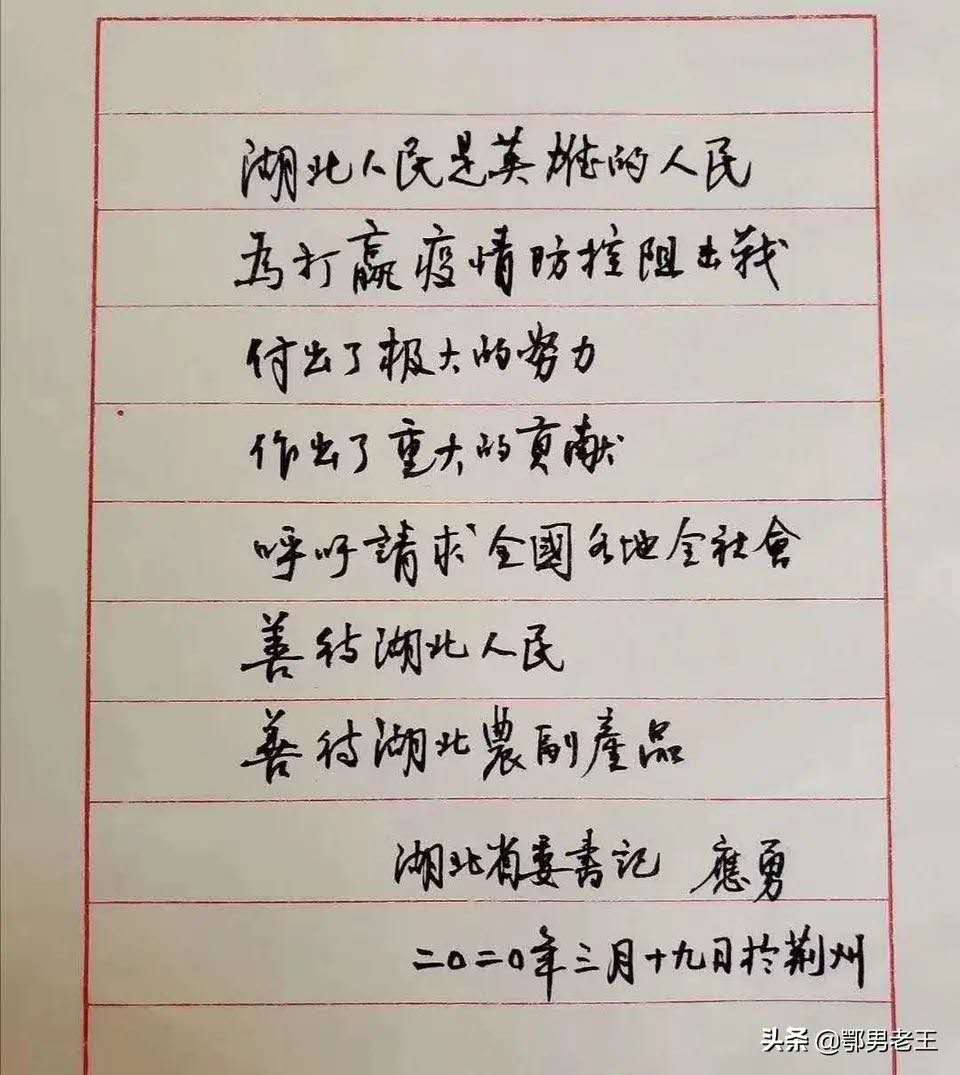 湖北人民是英雄的人民
為打贏疫情防控阻击战
付出了极大的努力
作出了重大的貢献
呼吁請求全國各地全社會
善待湖北人民
善待湖北農副產品
湖北省委書記 應勇
二〇二〇年三月十九日於荆州
头条 @鄂男老王